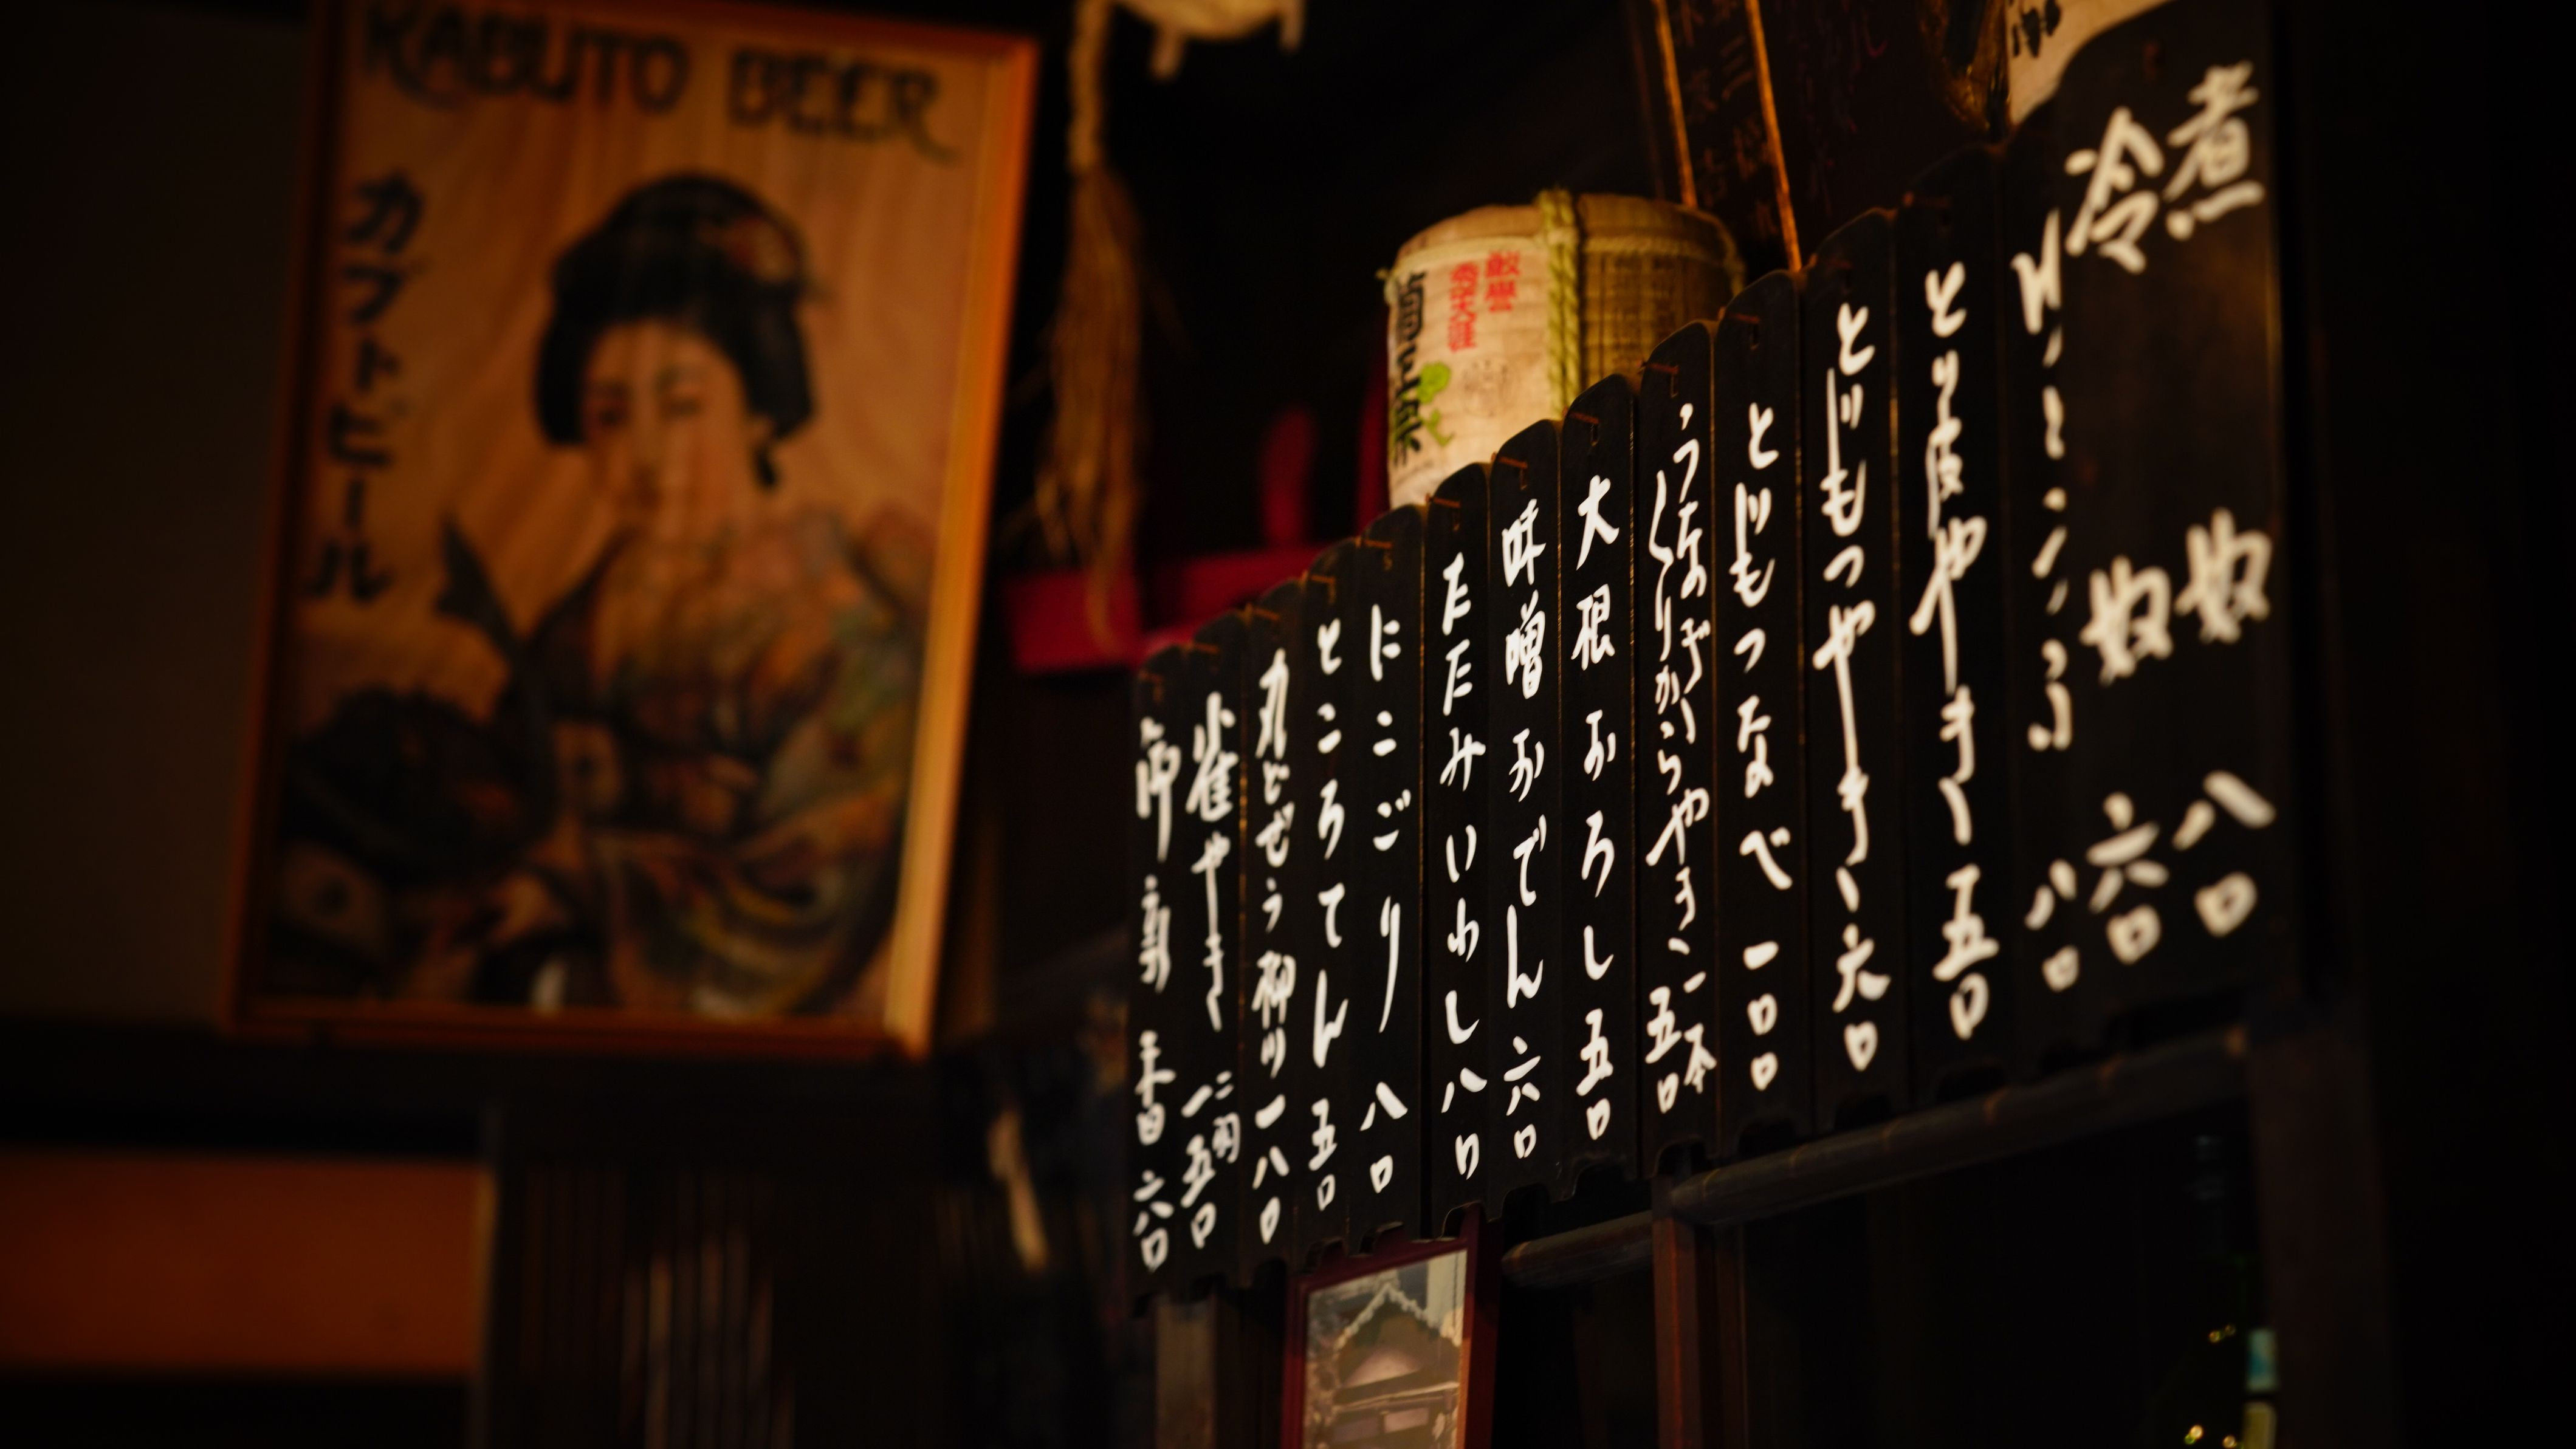 KABUTO BEER
カブトビール
煮奴八〇
冷奴六〇
とり皮やき五〇
とじもつやき六〇
とじもつなべ一〇〇
うなぎ
くりからやき一本
五〇
大根おろし五〇
味噌おでん六〇
たたみいわし八〇
にこごり八〇
ところてん五〇
丸どぜう柳川一八〇
雀やき二羽
一五〇
御新香六〇